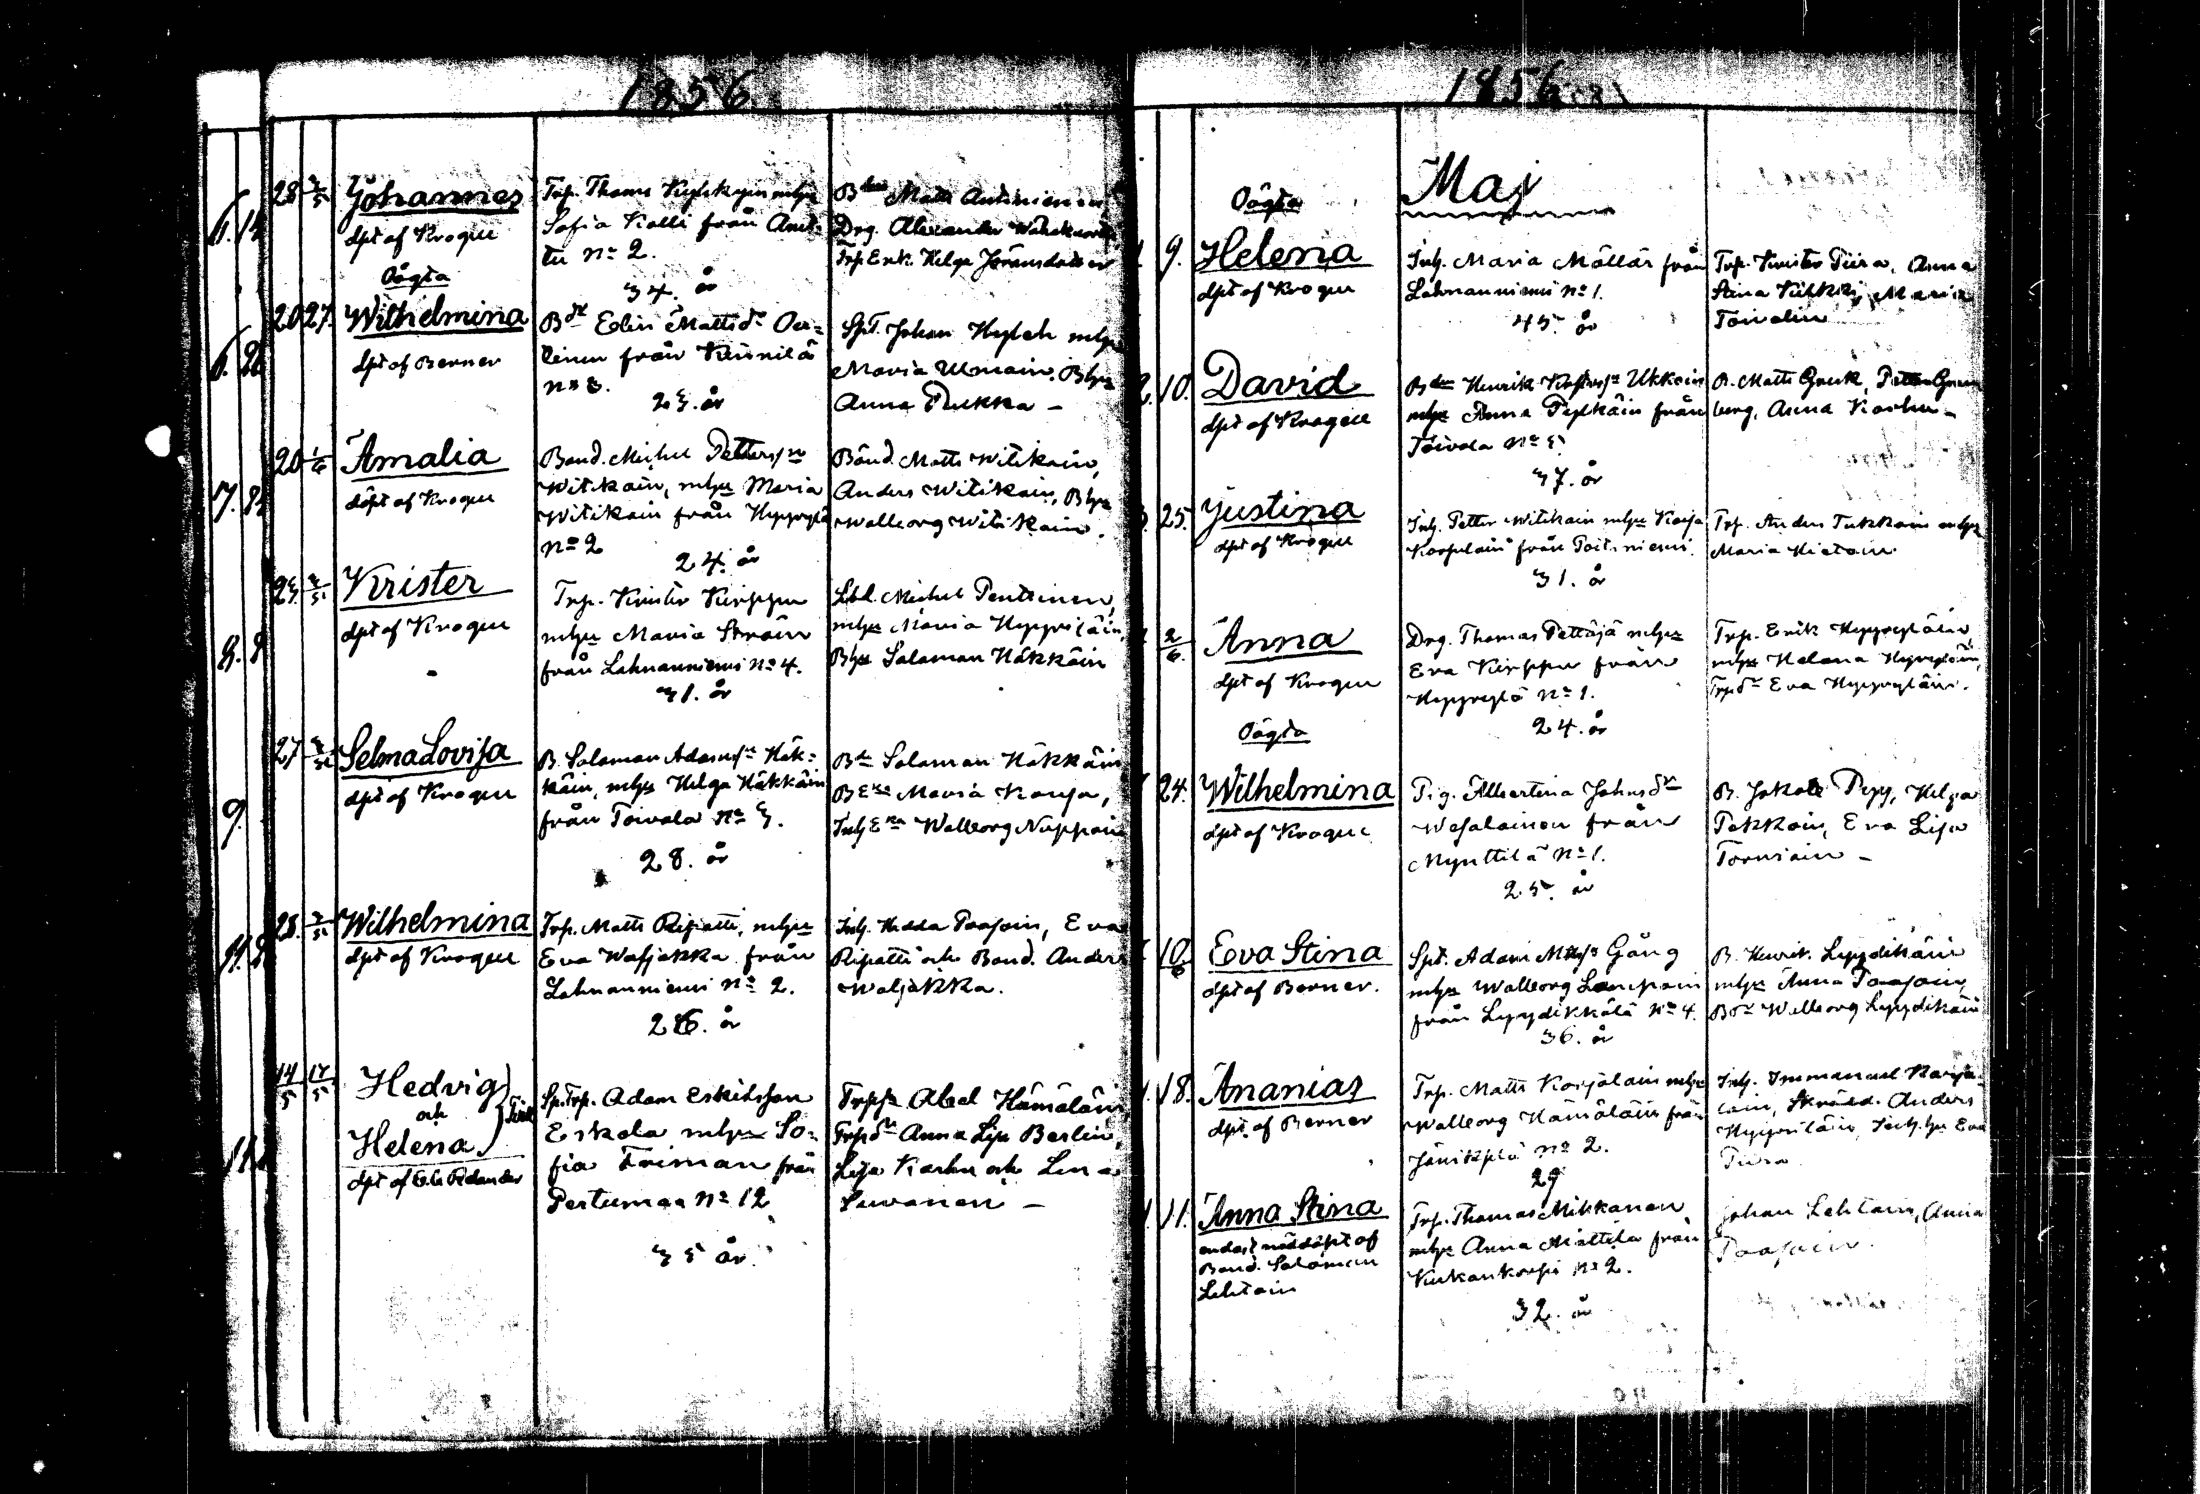 1856.
28 3/5 Johannes
döpt af Krogen
Trp. Thoms Kylskynen mhu
Sofia Kalli från Anat=
tu No 2.
34. år
B Matts Antinienen,
Drg. Alexander
Trp Erik. Helga Göransdotter
Oägta
20 27. Wilhelmina
döpt af Berner
Bdr Elin Mattsdr Oa=
linen från Kinnilä
No 3.
23. år
Spt. Johan Hylch mhu
Maria Ulmain. Bhu
Anna Pukka –
20 1/6 Amalia
döpt af Krogen
Bond. Michel Petterssn
Witikain, mhu Maria
Witikain från Hyyrylä
No 2
24. år
Bond. Matts Witikain,
Anders Witikain, Bhu
Walborg Witikain.
23. 3/5 Krister
döpt af Krogen
Trp. Krister Kirppu
mhu Maria Ström
från Lahnanniemi No 4.
31. år
Lbd. Michel Penttinen,
mhu Maria Hyyriläin,
Bhu Salaman Häkkäin
27 3/5 Selma Lovisa
döpt af Krogen
B. Salaman Adamssn Häk=
käin, mhu Helga Häkkäin
från Toivola No 3.
28. år
Bdn Salaman Häkkäin
BEka Maria Kauja,
InhEka Walborg Nuppoin
28. 3/5 Wilhelmina
döpt af Krogen
Trp. Matts Ripatti, mhu
Eva Wasjakka från
Lahnanniemi No 2.
26. år
Inh. Hedda Paasoin, Eva
Ripatti och Bond. Anders
Waljakka.
14/5 17/5 Hedvig
och
Helena
döpt af
Sp. Trp. Adam Eskilsson
Eskola mhu So=
fia Friman från
Pertumaa No 12
35 år.
Trpsn Abel Hämäläin,
Trpdr Anna Lisa Berlin,
Lisa Karhu och Lena
Suvanen –
1856
Maj
Oägta
9. Helena
döpt af Krogen
Inh. Maria Möllär från
Lahnanniemi No 1.
45. år
Trp. Krister Piira, Anna
Stina Kiikkij, Maria
Toivolin
10. David
döpt af Krogen
Bdn Henrik Ukkoin
mhu Anna Pylkäin från
Toivola No 5.
37. år
B. Matts Grenk, Petter Gren
berg, Anna Karhu –
25. Justina
döpt af Krogen
Inh. Petter Witikain mhu Kaisa
Korpelain från Poitiniemi.
31. år
Trp. Anders Tukkain mhu
Maria Hietain
2/6. Anna
döpt af Krogen
Drg. Thomas Pettäjä mhu
Eva Kirppu från
Hyyrylä No 1.
24. år
Trp. Erik Hyyryläin,
mhu Helena Hyyryläin,
Trpdr Eva Hyyryläin.
Oägta
24. Wilhelmina
döpt af Krogen
Pig. Albertina Johnsdr
Wesalainen från
Mynttilä No 1.
25. år
B. Jakob Pepp, Helga
Pakkain, Eva Lisa
Torniain –
10/6 Eva Stina
döpt af Berner.
Spt. Adam Mattssn Gång
mhu Walborg Lampain
från Lyydikkälä No 4.
36. år
B. Henrik Lyydikäin
mhu Anna Paasoin,
Bdr Walborg Lyydikäin
18. Ananias
döpt af Berner
Trp. Matts Karjalain mhu
Walborg Hämäläin från
Jänikylä No 2.
29
Inh. Immanuel Karja=
lain, Skrädd. Anders
Hyyriläin, Inh. hu Eva
Piira
11. Anna Stina
endast nöddöpt af
Bond. Salomon
Lehtain
Trp. Thomas Mikkanen
mhu Anna Mattila från
Kurkankorpi No 2.
32. år
Johan Lehtain, Anna
Paasoin.